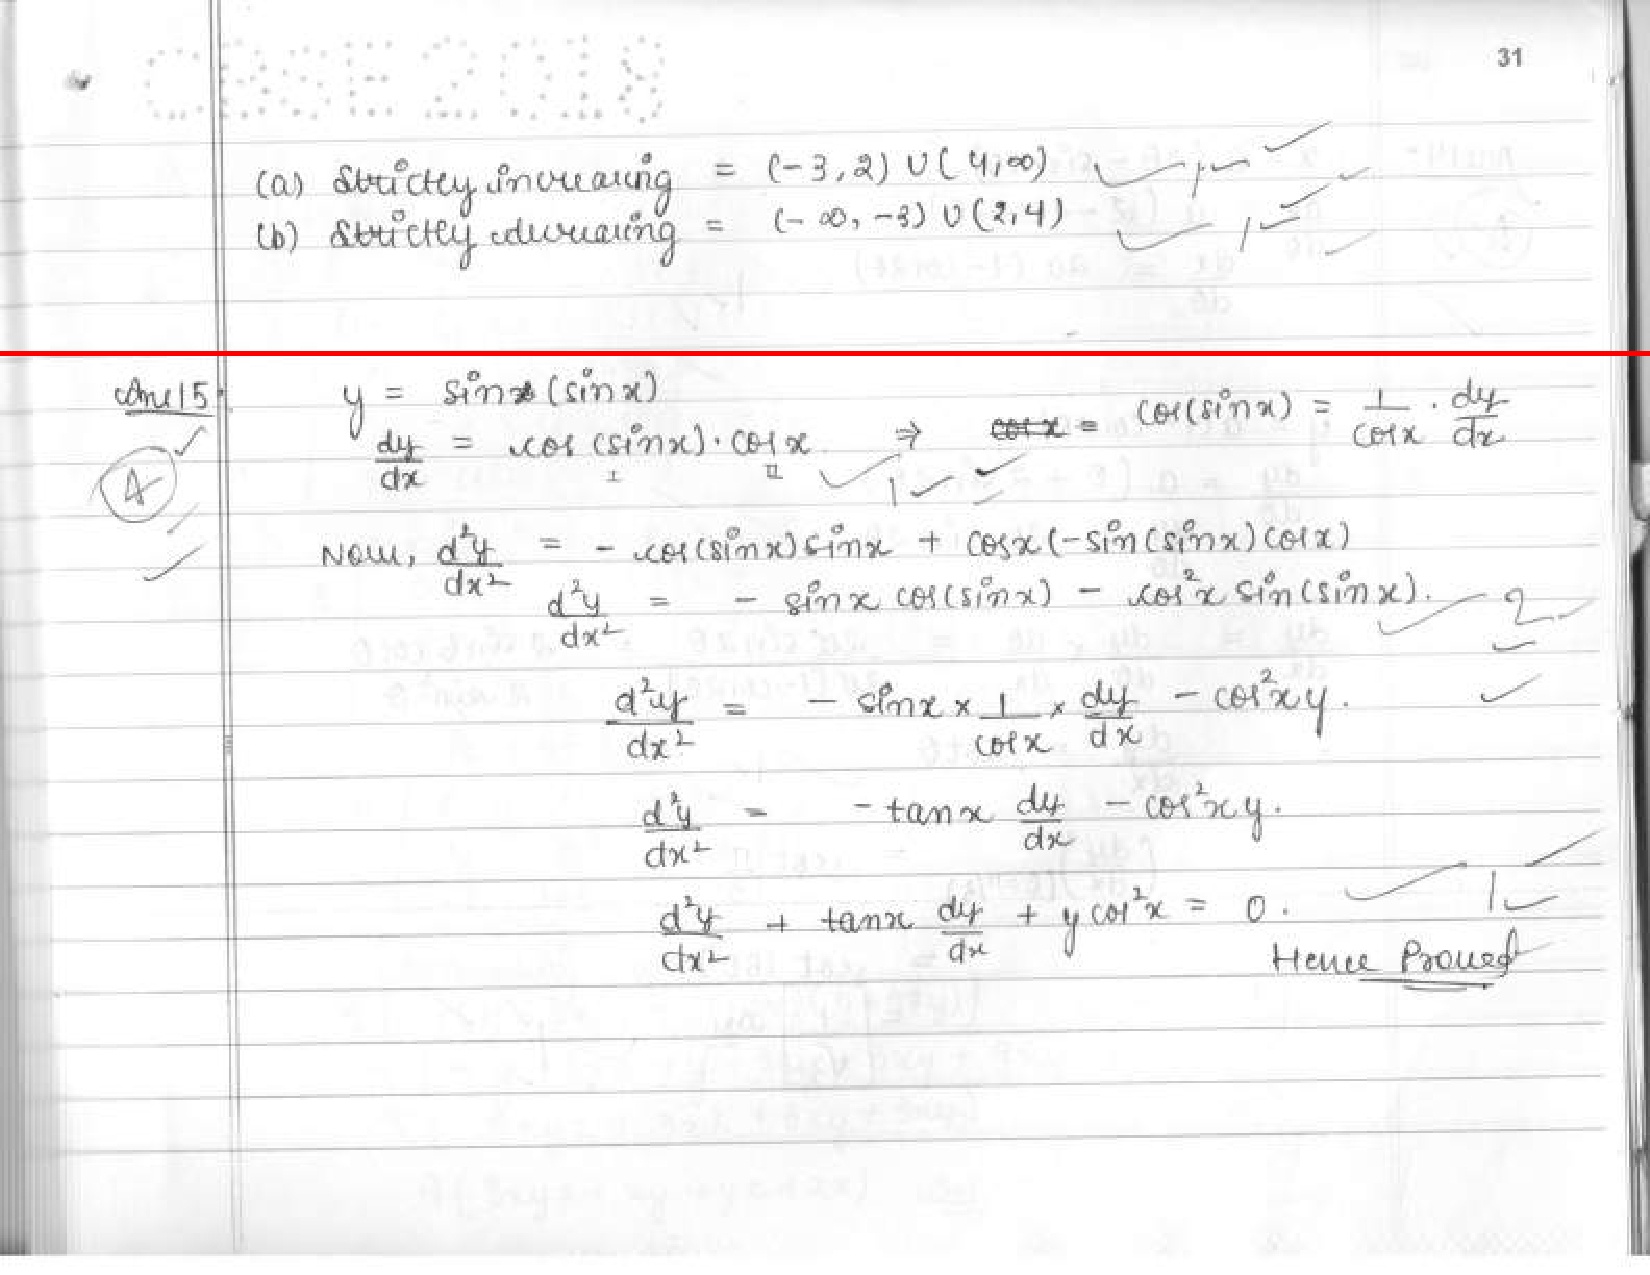 CBSE 2018
31
(a) Strictly increasing = (-3, 2) ∪ (4, ∞) 1
(b) Strictly decreasing = (-∞, -3) ∪ (2, 4) 1
Ans 15. y = sin (sin x)
dy/dx = cos (sin x) · cos x ⇒ cos x = cos(sin x) = 1/cos x · dy/dx
I II 1
4
Now, d²y/dx² = - cos(sin x) sin x + cos x (-sin (sin x) cos x)
d²y/dx² = - sin x cos(sin x) - cos²x sin (sin x). 2
d²y/dx² = - sin x × 1/cos x × dy/dx - cos²x y.
d²y/dx² = - tan x dy/dx - cos²x y.
d²y/dx² + tan x dy/dx + y cos²x = 0. 1
Hence Proved